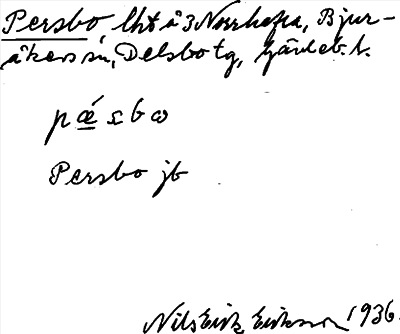 Persbo, lht å 3 Norrhavra, Bjur-
åkers sn, Delsbo tg, Gävleb. l.
pǽsbω
Persbo jb
Nils Erik Eriksson 1936.